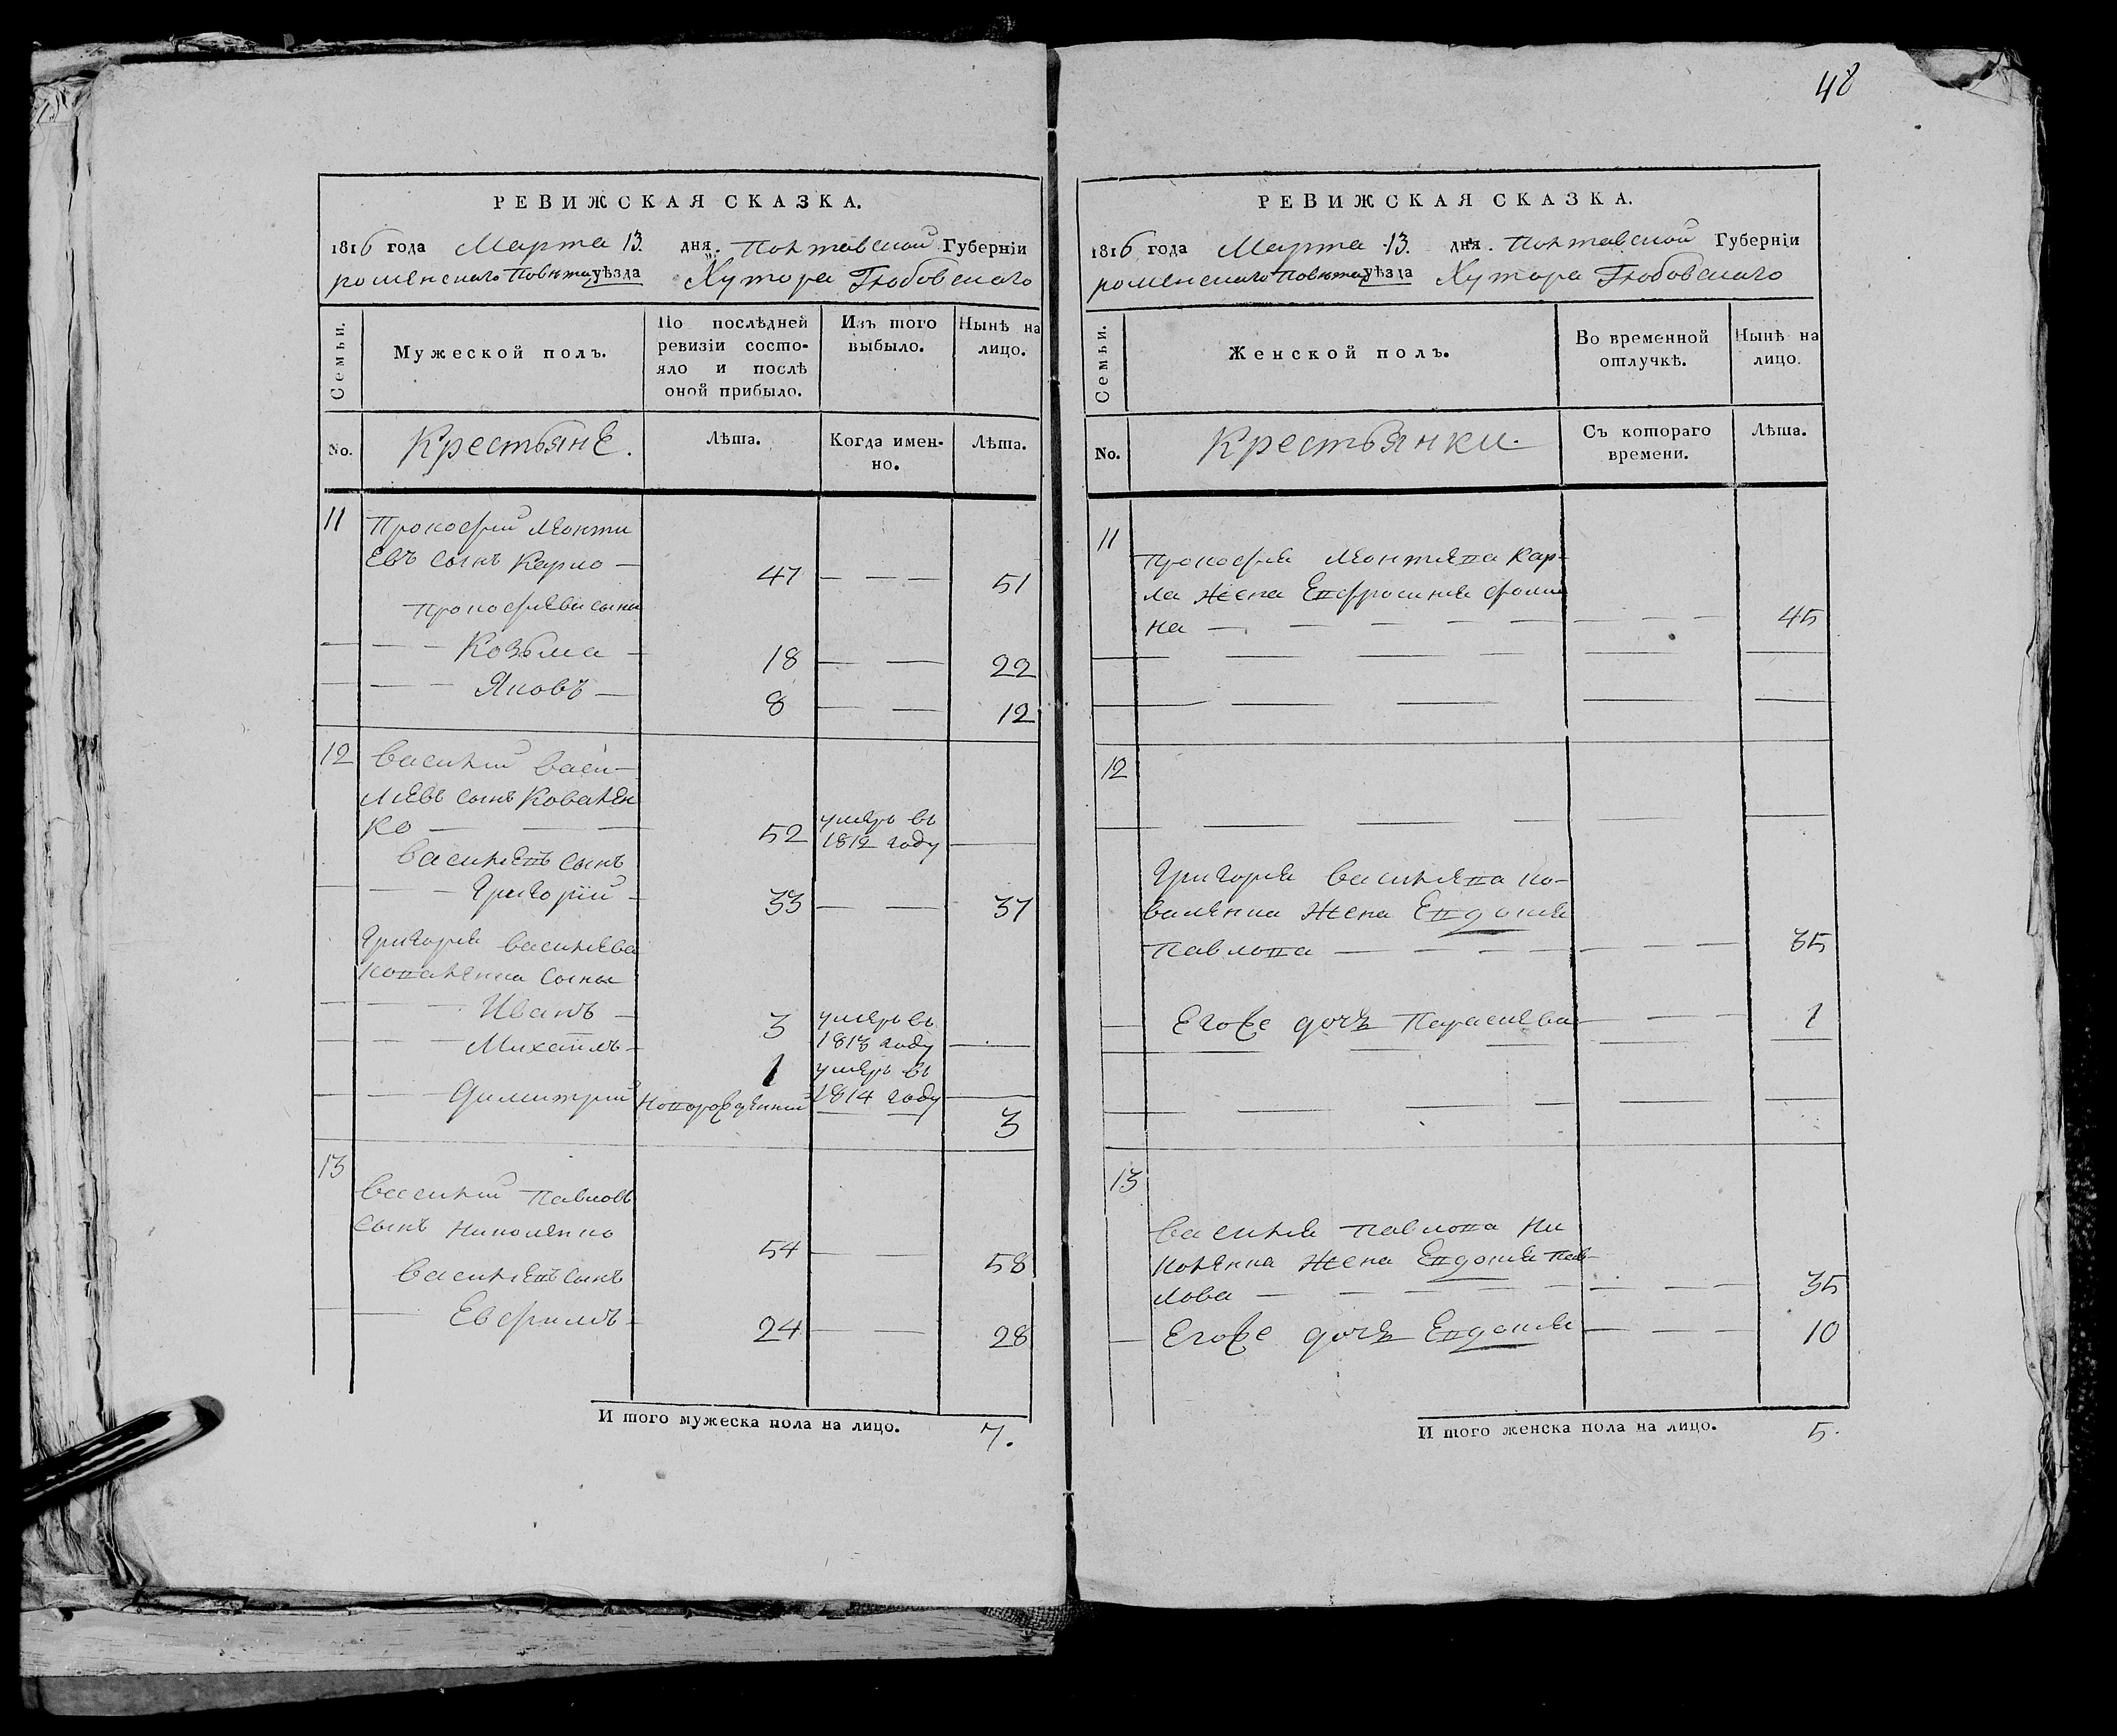 48
РЕВИЖСКАЯ СКАЗКА.
1816 года Марта 13. дня. Полтавской Губерніи
роменского Повѣта уѣзда Хутора
Семьи.
Мужеской полъ.
По послѣдней
ревизіи состо-
яло и послѣ
оной прибыло.
Изъ того
выбыло.
Нынѣ на
лицо.
No.
Крестьяне.
Лѣта.
Когда имен-
но.
Лѣта.
11 Прокофий Леонти
Евъ сынъ Карло — 47 — — — 51
Прокофиевы сыны
— — — Козьма — 18 — — 22
— — — Яковъ — 8 — — 12
12 василий васи-
лиевъ сынъ Ковален
ко — — — 52 умеръ въ 1812 году —
василиевъ сынъ
— — — Григорий — 33 — — 37
Григория василиева
Коваленка сыны
— — — Иванъ — 3 умеръ въ 1813 году —
— — — Михаилъ — 1 умеръ въ 1814 году —
— — — Димитрий новорожденный — — 3
13 василий павловъ
сынъ николенко 54 — — 58
василиевъ сынъ
— — Евфимъ — 24 — — 28
И того мужеска пола на лицо. 7.
РЕВИЖСКАЯ СКАЗКА.
1816 года Марта 13. дня. Полтавской Губерніи
роменского Повѣта уѣзда Хутора
Семьи.
Женской полъ.
Во временной
отлучкѣ.
Нынѣ на
лицо.
No.
Крестьянки.
Съ котораго
времени.
Лѣта.
11
Прокофия Леонтиева Кар-
ла жена Евфросиния фоми
на — — — — — — — — 45
12
Григория василиева ко-
валенка жена Евдокия
Павлова — — — — — — — 35
— Егоже дочь Параскева — — — 1
13
василия павлова ни
коленка жена Евдокия пав-
лова — — — — — — — — 35
— Егоже дочь Евдокия — — — 10
И того женска пола на лицо. 5.